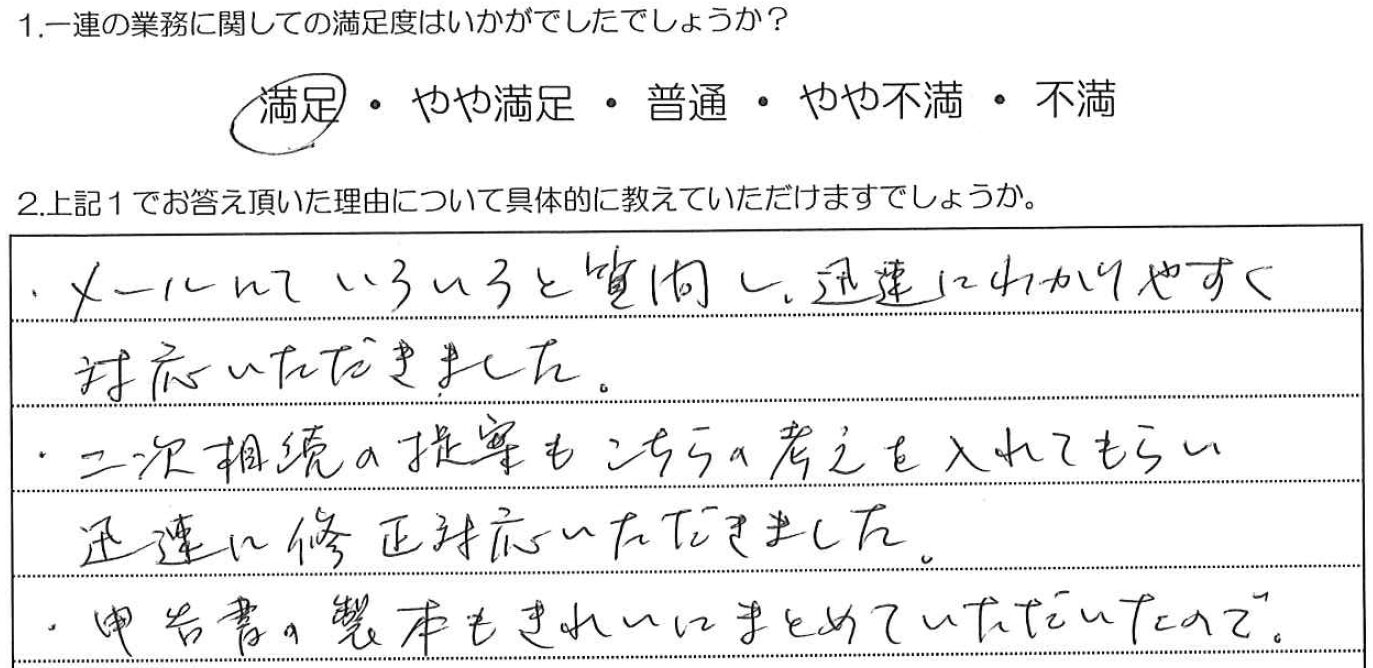 1.一連の業務に関しての満足度はいかがでしたでしょうか？
満足 ・ やや満足 ・ 普通 ・ やや不満 ・ 不満
2.上記1でお答え頂いた理由について具体的に教えていただけますでしょうか。
・メールにていろいろと質問し、迅速にわかりやすく
対応いただきました。
・二次相続の提案もこちらの考えを入れてもらい
迅速に修正対応いただきました。
・申告書の製本もきれいにまとめていただいたので。